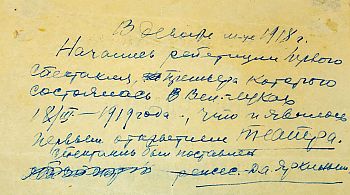 В декабре м-це 1918 г.
Начались репетиции первого
спектакля, премьера которого
состоялась в Вен-Луках
18/III - 1919 года, что и явилось
первым открытием театра.
Спектакль был поставлен
режес.